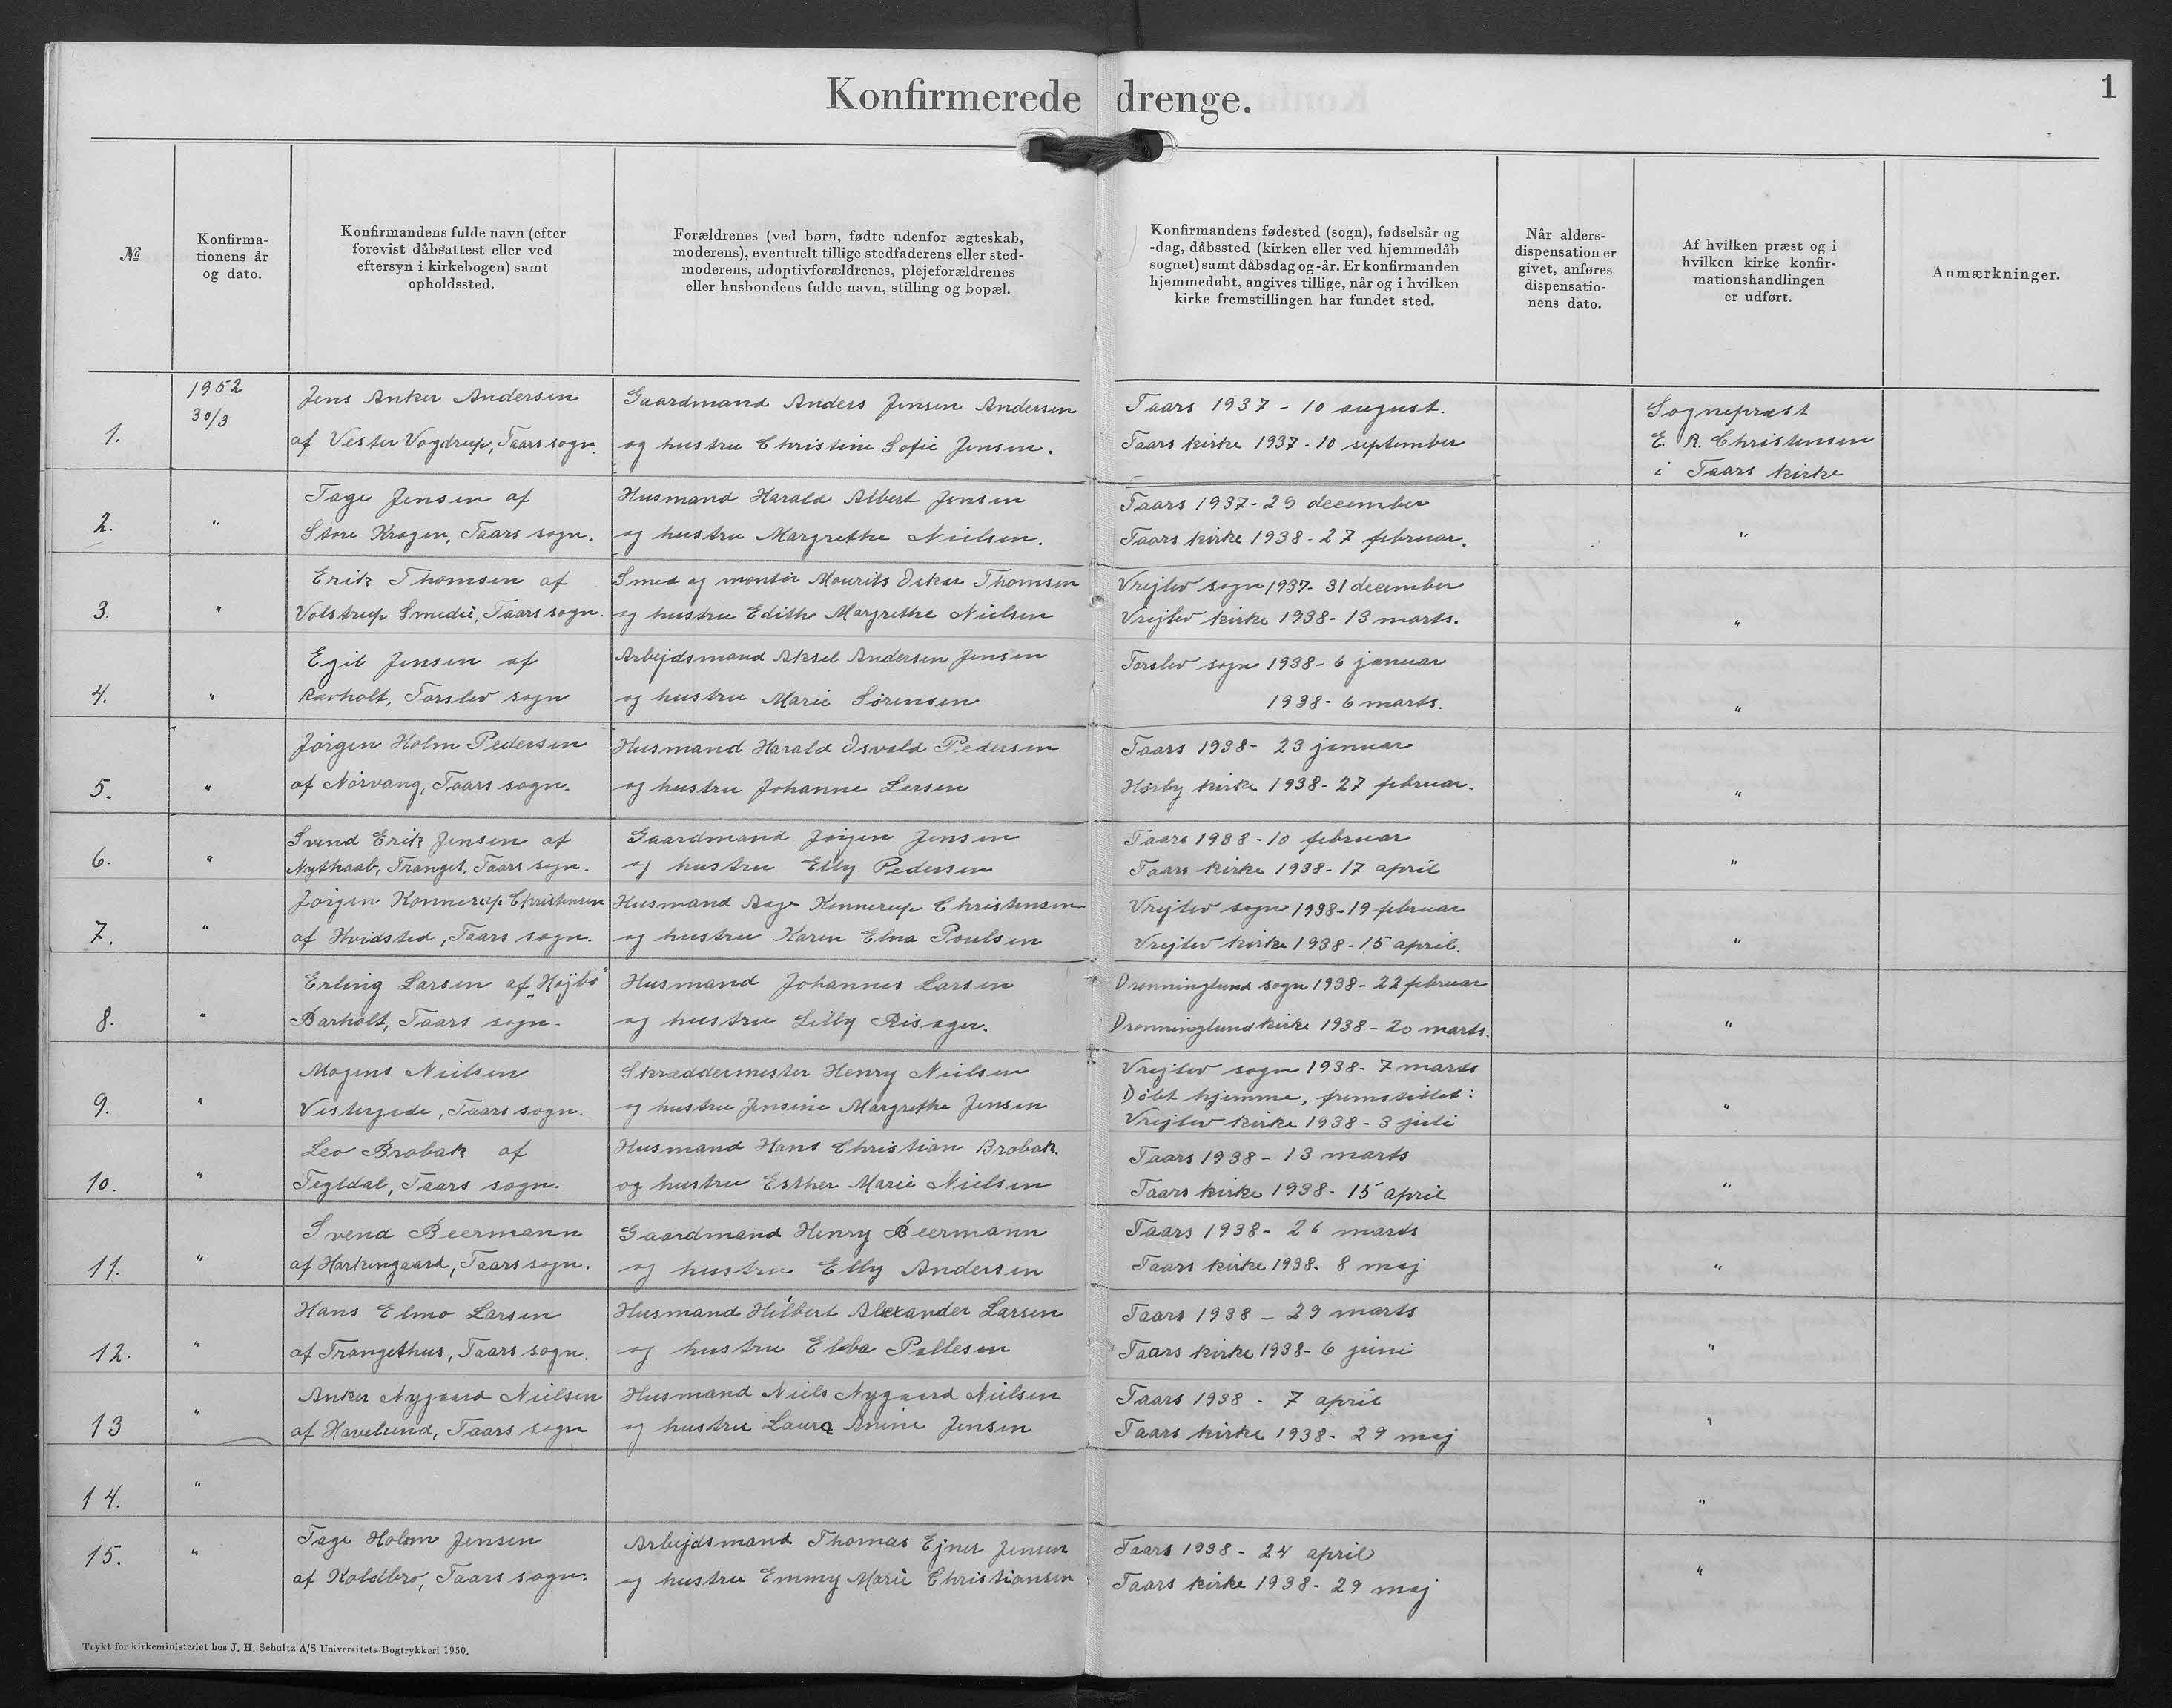 Konfirmerede drenge.
1
№
Konfirma-
tionens år
og dato.
Konfirmandens fulde navn (efter
forevist dåbsattest eller ved
eftersyn i kirkebogen) samt
opholdssted.
Forældrenes (ved børn, fødte udenfor ægteskab,
moderens), eventuelt tillige stedfaderens eller sted-
moderens, adoptivforældrenes, plejeforældrenes
eller husbondens fulde navn, stilling og bopæl.
Konfirmandens fødested (sogn), fødselsår og
-dag, dåbssted (kirken eller ved hjemmedåb
sognet) samt dåbsdag og -år. Er konfirmanden
hjemmedøbt, angives tillige, når og i hvilken
kirke fremstillingen har fundet sted.
Når alders-
dispensation er
givet, anføres
dispensatio-
nens dato.
Af hvilken præst og i
hvilken kirke konfir-
mationshandlingen
er udført.
Anmærkninger.
1.
1952
30/3
Jens Anker Andersen
af Vester Vogdrup, Taars sogn.
Gaardmand Anders Jensen Andersen
og hustru Christine Sofie Jensen.
Taars 1937 - 10 august.
Taars kirke 1937 - 10 september
Sognepræst
E. A. Christensen
i Taars kirke
2.
"
Tage Jensen af
Store Krogen, Taars sogn.
Husmand Harald Albert Jensen
og hustru Margrethe Nielsen.
Taars 1937 - 29 december
Taars kirke 1938 - 27 februar.
"
3.
"
Erik Thomsen af
Volstrup Smedie, Taars sogn.
Smed og montør Mourits Oskar Thomsen
og hustru Edith Margrethe Nielsen
Vrejlev sogn 1937 - 31 december
Vrejlev kirke 1938 - 13 marts.
"
4.
"
Egil Jensen af
Ravholt, Torslev sogn
Arbejdsmand Aksel Andersen Jensen
og hustru Marie Sørensen
Torslev sogn 1938 - 6 januar
1938 - 6 marts.
"
5.
"
Jørgen Holm Pedersen
af Nørvang, Taars sogn.
Husmand Harald Osvald Pedersen
og hustru Johanne Larsen
Taars 1938 - 23 januar
Hørby kirke 1938 - 27 februar.
"
6.
"
Svend Erik Jensen af
Nythaab, Tranget, Taars sogn.
Gaardmand Jørgen Jensen
og hustru Elly Pedersen
Taars 1938 - 10 februar
Taars kirke 1938 - 17 april
"
7.
"
Jørgen Konnerup Christensen
af Hvidsted, Taars sogn.
Husmand Aage Konnerup Christensen
og hustru Karen Elna Poulsen
Vrejlev sogn 1938 - 19 februar
Vrejlev kirke 1938 - 15 april.
"
8.
"
Erling Larsen af "Højbo"
Barholt, Taars sogn.
Husmand Johannes Larsen
og hustru Lilly Risager.
Dronninglund sogn 1938 - 22 februar
Dronninglund kirke 1938 - 20 marts.
"
9.
"
Mogens Nielsen
Vestergade, Taars sogn.
Skræddermester Henry Nielsen
og hustru Jensine Margrethe Jensen
Vrejlev sogn 1938 - 7 marts
Døbt hjemme, fremstillet:
Vrejlev kirke 1938 - 3 juli
"
10.
"
Leo Brobak af
Tegldal, Taars sogn.
Husmand Hans Christian Brobak
og hustru Esther Marie Nielsen
Taars 1938 - 13 marts
Taars kirke 1938 - 15 april
"
11.
"
Svend Beermann
af Harkengaard, Taars sogn.
Gaardmand Henry Beermann
og hustru Elly Andersen
Taars 1938 - 26 marts
Taars kirke 1938 - 8 maj
"
12.
"
Hans Elmo Larsen
af Trangethus, Taars sogn.
Husmand Hilbert Alexander Larsen
og hustru Ebba Pallesen
Taars 1938 - 29 marts
Taars kirke 1938 - 6 juni
"
13
"
Anker Nygaard Nielsen
af Havelund, Taars sogn
Husmand Niels Nygaard Nielsen
og hustru Laura Anine Jensen
Taars 1938 - 7 april
Taars kirke 1938 - 29 maj
"
14.
"
"
15.
"
Tage Holm Jensen
af Koldbro, Taars sogn.
Arbejdsmand Thomas Ejner Jensen
og hustru Emmy Marie Christiansen
Taars 1938 - 24 april
Taars kirke 1938 - 29 maj
"
Trykt for kirkeministeriet hos J. H. Schultz A/S Universitets-Bogtrykkeri 1950.